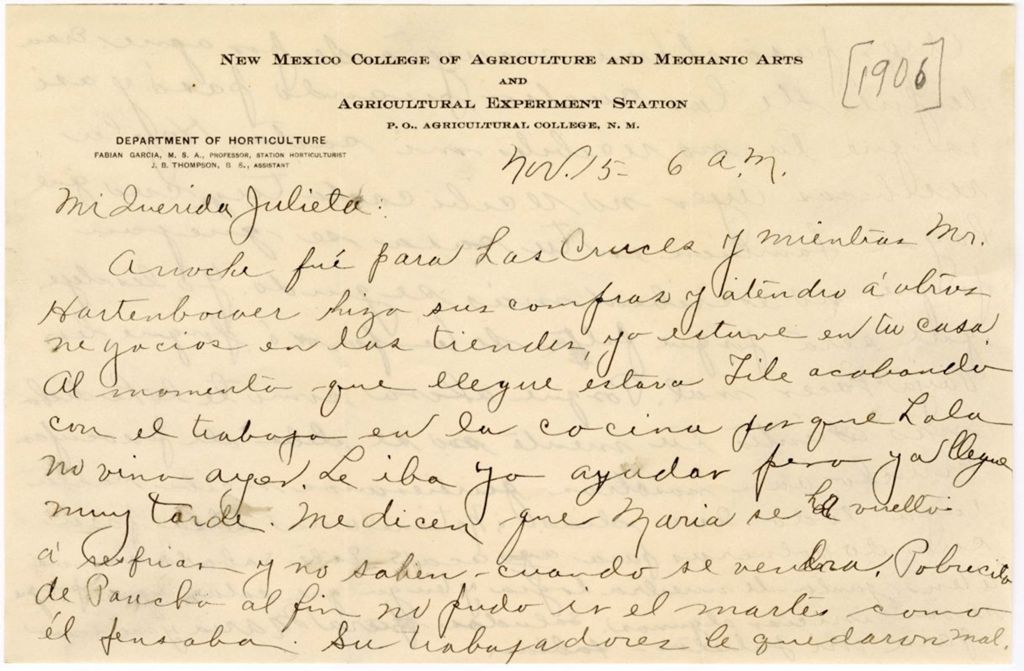 New Mexico College of Agriculture and Mechanic Arts
and
Agricultural Experiment Station
P. O., Agricultural College, N. M.
[1906]
Department of Horticulture
Fabian Garcia, M. S. A., Professor, Station Horticulturist
J. B. Thompson, B. S., Assistant
Nov. 15- 6 a.m.
Mi Querida Julieta:
Anoche fué para Las Cruces y mientras Mr.
Hartenbower hizo sus compras y atendio á otros
negocios en las tiendes, yo estuve en tu casa
Al momento que llegue estava Tile acabando
con el trabajo en la cocina por que Lola
no vino ayer. Le iba yo ayudar pero ya llegue
muy tarde. Me dicen que Maria se ha vuelto
á resfriar y no saben cuando se vendra. Pobrecito
de Pancho al fin no pudo ir el martes como
él pensaba. Su trabajadores le quedaron mal.